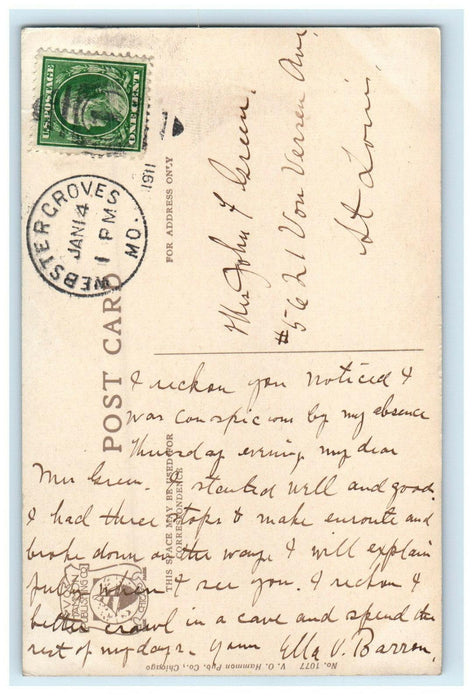 U.S. POSTAGE
ONE CENT
WEBSTER GROVES
JAN 14
1 PM
MO.
1911
POST CARD
FOR ADDRESS ONLY
Mrs John F Green.
#5621 Von Versen Av.
St Louis.
THIS SPACE MAY BE USED FOR
CORRESPONDENCE
I reckon you noticed I
was conspicuous by my absence
Thursday evening my dear
Mrs Green. I started well and good.
I had three stops to make enroute and
broke down on the way. I will explain
fully when I see you. I reckon I
better crawl in a cave and spend the
rest of my days. Yours Ella V. Barron.
No. 1077 V. O. Hammon Pub. Co., Chicago